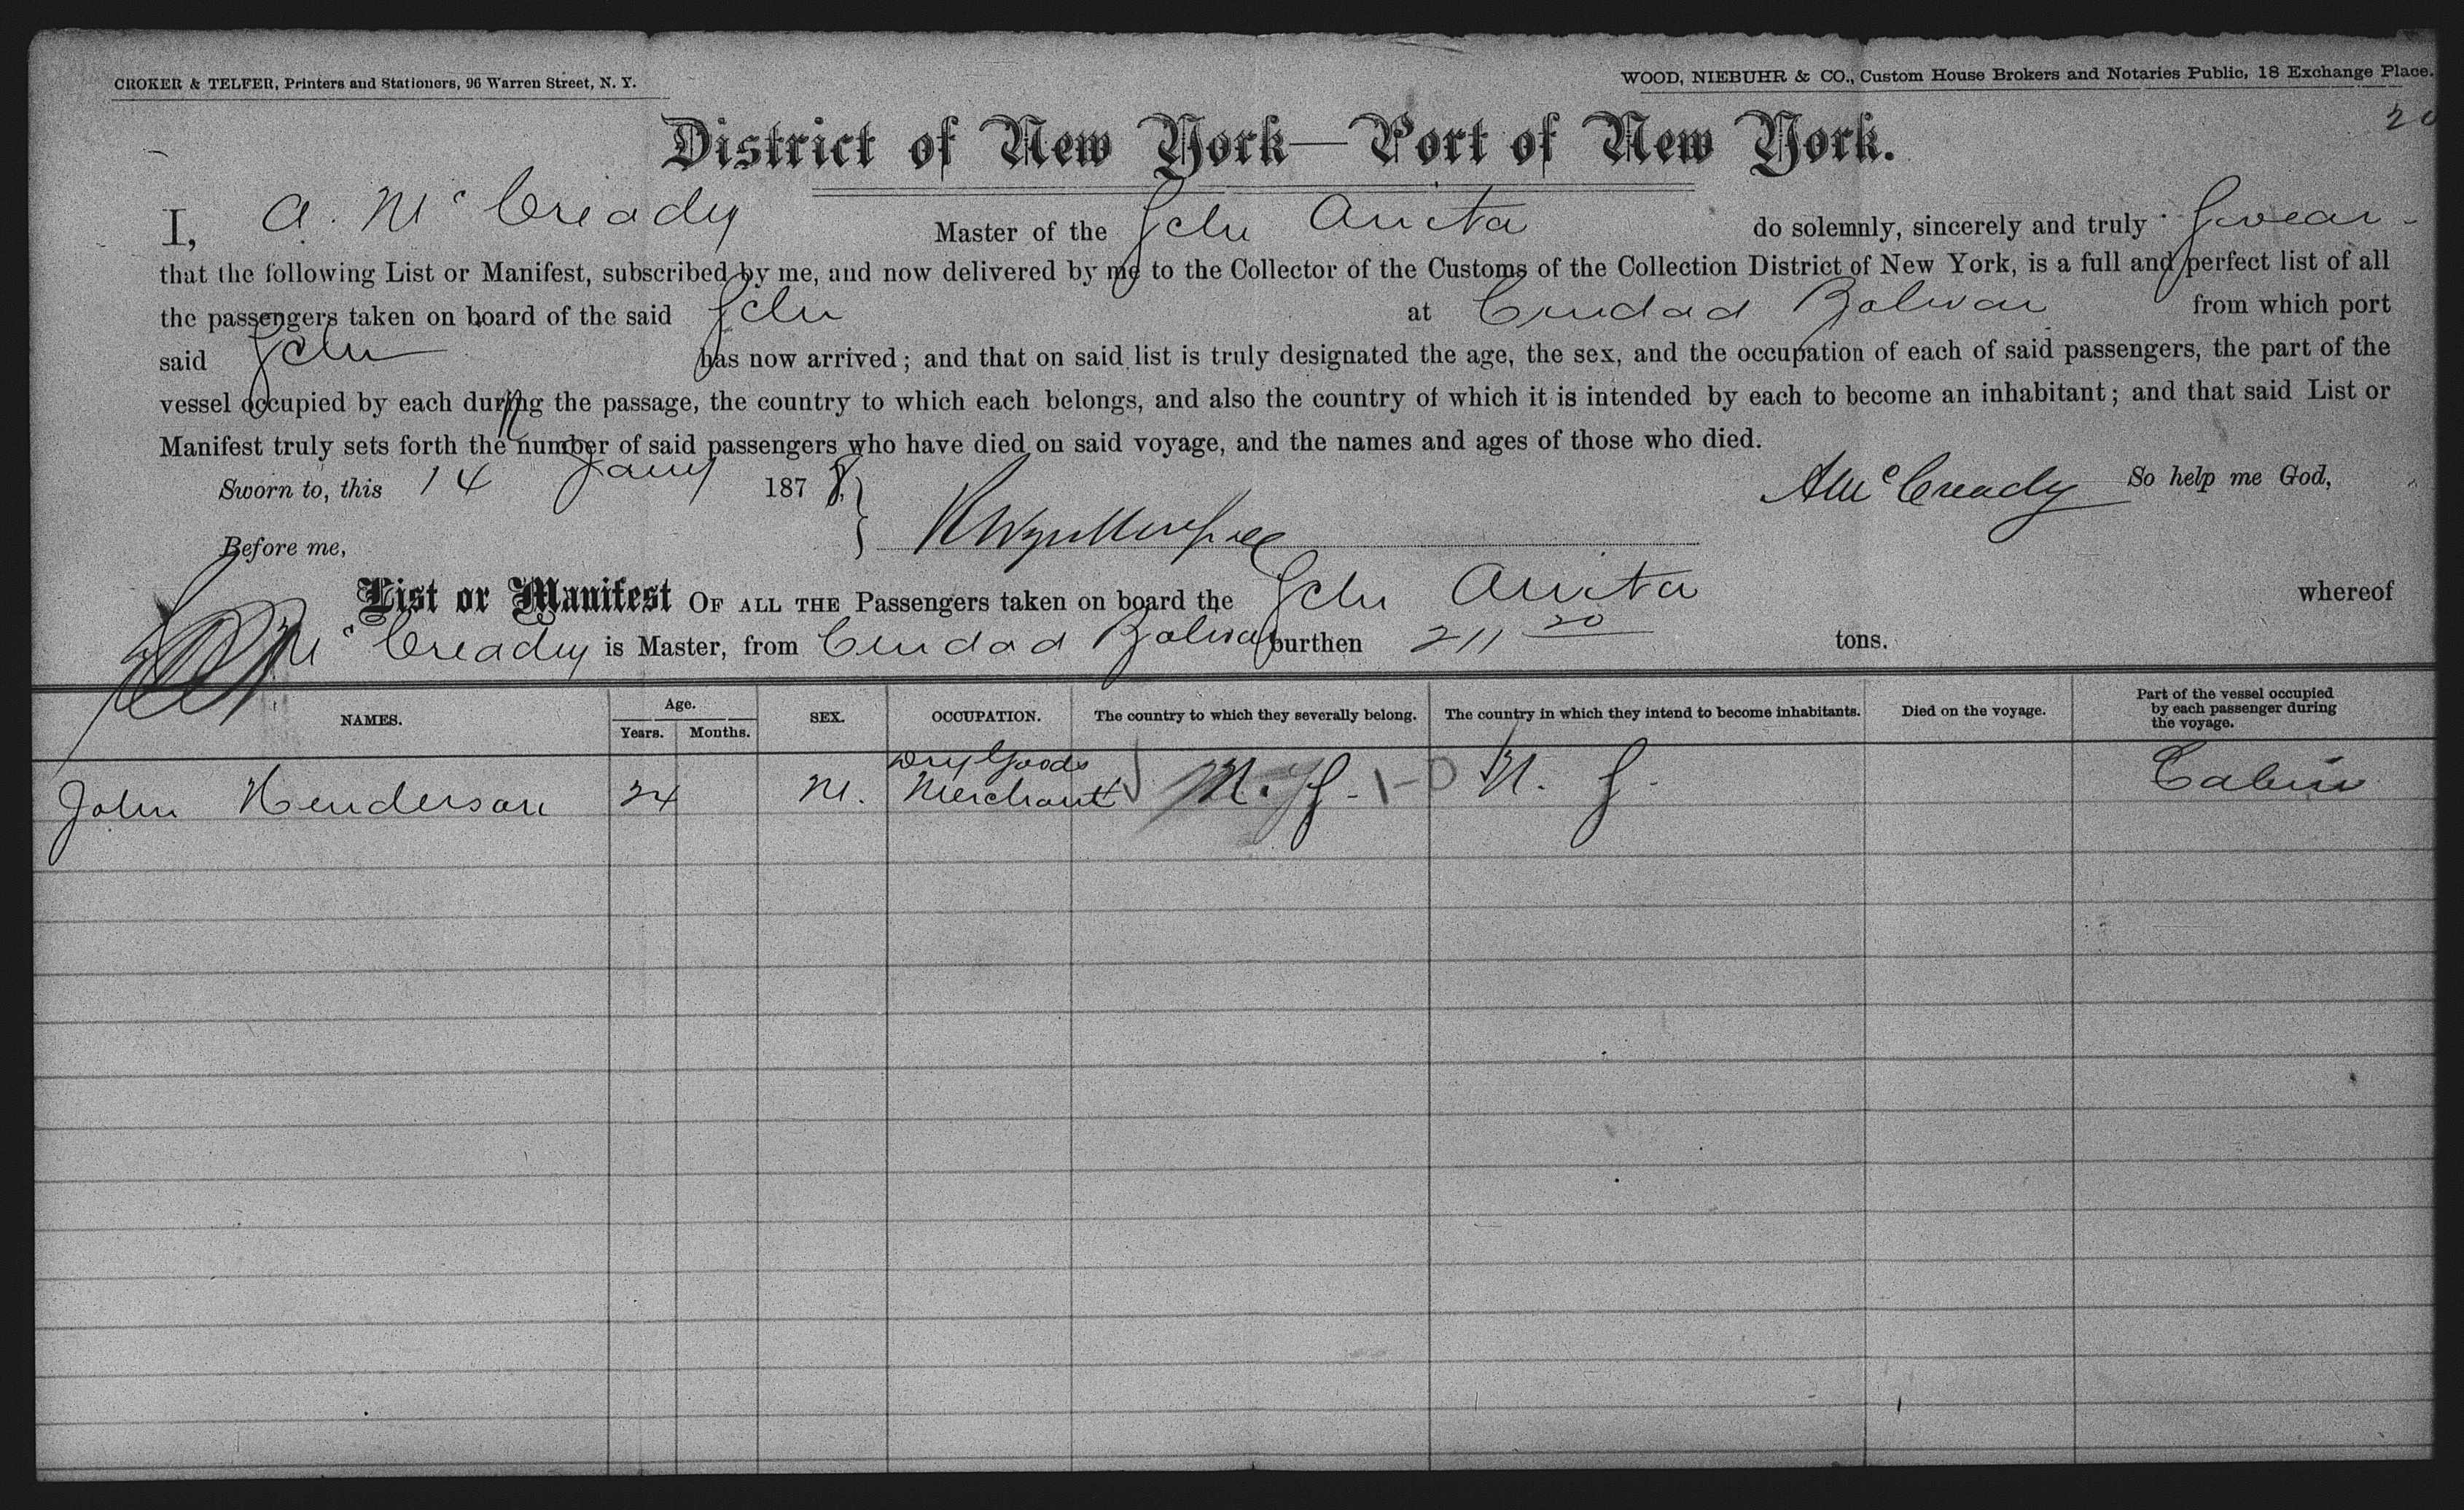 CROKER & TELFER, Printers and Stationers, 96 Warren Street, N. Y.
WOOD, NIEBUHR & CO., Custom House Brokers and Notaries Public, 18 Exchange Place.
20
District of New York—Port of New York.
I, A. McCready Master of the Schr Anita do solemnly, sincerely and truly Swear
that the following List or Manifest, subscribed by me, and now delivered by me to the Collector of the Customs of the Collection District of New York, is a full and perfect list of all
the passengers taken on board of the said Schr at Ciudad Bolivar from which port
said Schr has now arrived; and that on said list is truly designated the age, the sex, and the occupation of each of said passengers, the part of the
vessel occupied by each during the passage, the country to which each belongs, and also the country of which it is intended by each to become an inhabitant; and that said List or
Manifest truly sets forth the number of said passengers who have died on said voyage, and the names and ages of those who died.
Sworn to, this 14 Jany 1878. A McCready So help me God,
Before me,
List or Manifest OF ALL THE Passengers taken on board the Schr Anita whereof
McCready is Master, from Ciudad Bolivar burthen 211 20 tons.
NAMES. Age. Years. Months. SEX. OCCUPATION. The country to which they severally belong. The country in which they intend to become inhabitants. Died on the voyage. Part of the vessel occupied by each passenger during the voyage.
John Henderson 24 M. Dry Goods Merchant U. S. 1-0 U. S. Cabin